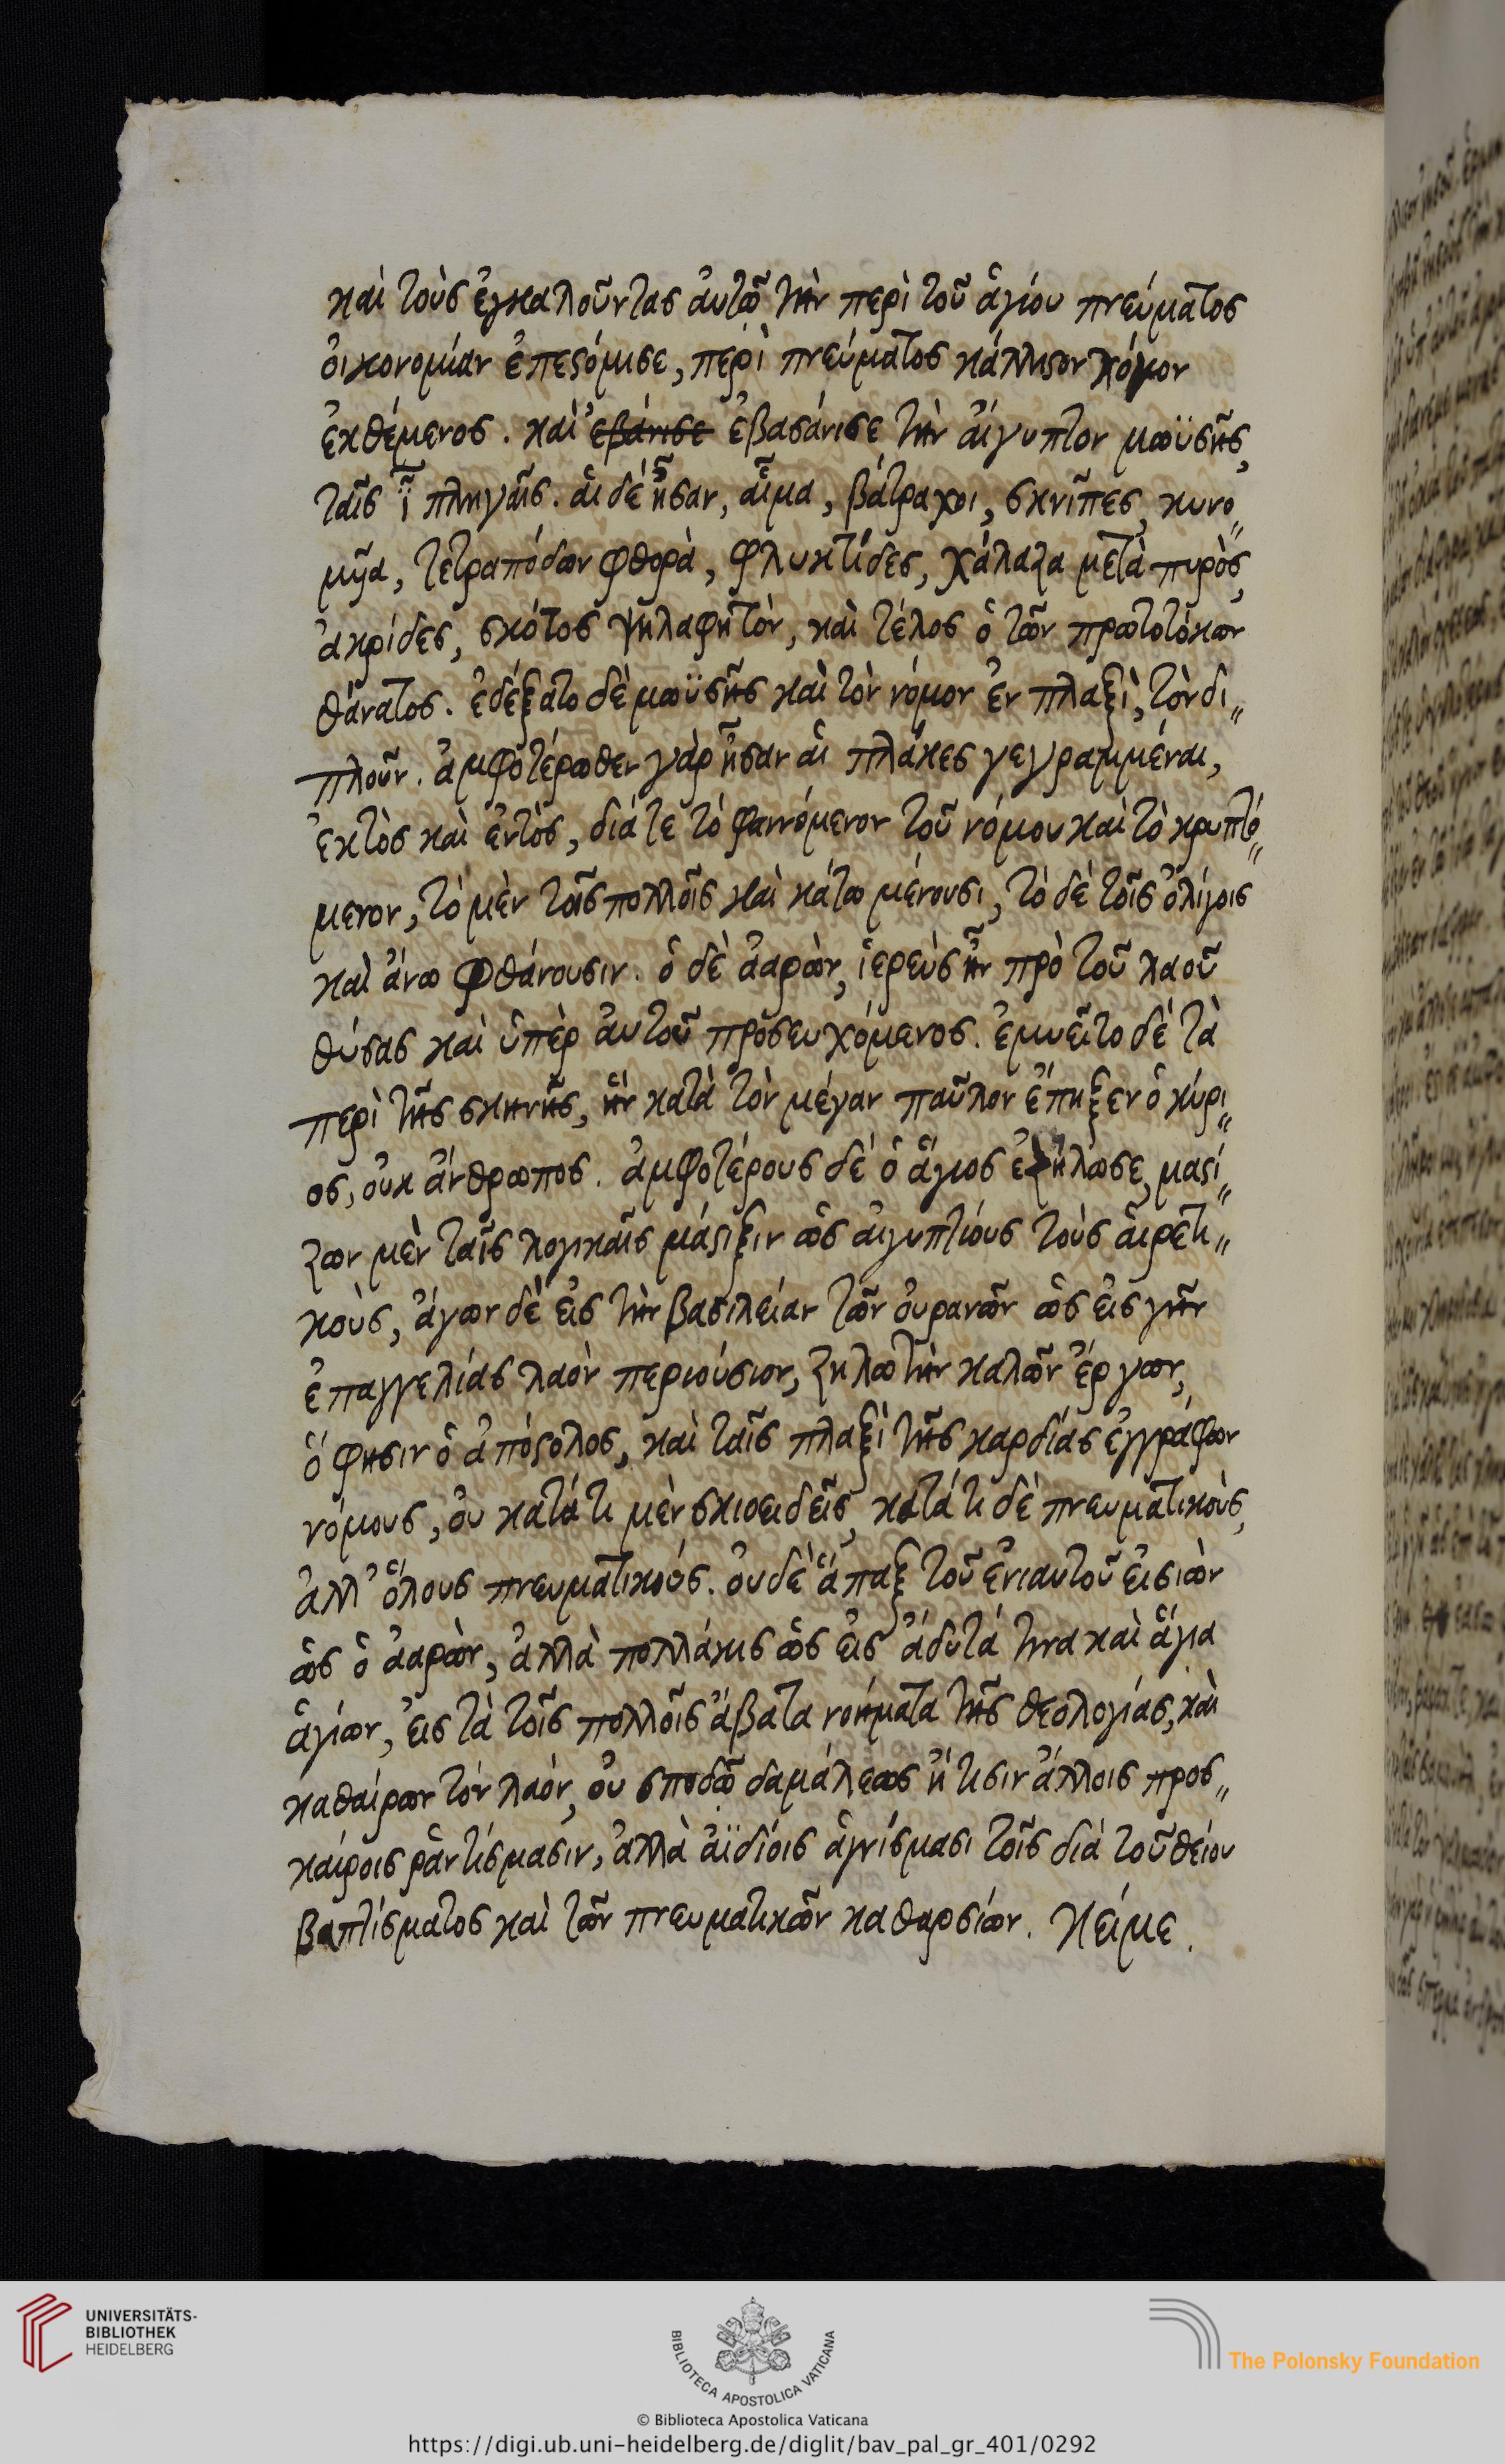 καὶ τοὺς ἐγκαλοῦντας ἀυτῶ τὴν περὶ τοῦ ἁγίου πνεύματος
ὀικονομίαν ἐπεςόμισε, περὶ πνεύματος κάλλιςον λόγον
ἐκθέμενος. καὶ ἐβάνισε ἐβασάνισε τὴν ἀίγυπτον μωϋσῆς,
ταῖς ϊ πληγαῖς. ἁι δέ ἦσαν, αἷμα, βάτραχοι, σκνῖπες, κυνο„
μῦα, τετραπόδων φθορὰ, φλυκτίδες, χάλαζα μετὰ πυρὸς,
ἀκρίδες, σκότος ψηλαφητὸν, καὶ τέλος ὁ τῶν πρωτοτόκων
θάνατος. ἐδέξατο δὲ μωϋσῆς καὶ τὸν νόμον ἐν πλαξὶ, τὸν δι„
πλοῦν. ἀμφοτέρωθεν γὰρ ἦσαν ἁι πλάκες γεγραμμέναι,
ἐκτὸς καὶ ἐντὸς, διά τε τὸ φαινόμενον τοῦ νόμου καὶ τὸ κρυπτό„
μενον, τὸ μὲν τοῖς πολλοῖς καὶ κάτω μένουσι, τὸ δὲ τοῖς ὀλίγοις
καὶ ἄνω φθάνουσιν. ὁ δὲ ἀαρὼν, ἱερεὺς ἦν πρὸ τοῦ λαοῦ
θύσας καὶ ὑπὲρ ἀυτοῦ προσευχόμενος. ἐμυεῖτο δὲ τὰ
περὶ τῆς σκηνῆς, ἣν κατὰ τὸν μέγαν παῦλον ἔπηξεν ὁ κύρι„
ος, οὐκ ἄνθρωπος. ἀμφοτέρους δὲ ὁ ἅγιος ἐζήλωσε, μαςί„
ζων μὲν ταῖς λογικαῖς μάςιξιν ὡς ἀιγυπτίους τοὺς ἁιρετι„
κοὺς, ἄγων δὲ ἐις τὴν βασιλείαν τῶν ὀυρανῶν ὡς ἐις γῆν
ἐπαγγελίας λαὸν περιούσιον, ζηλωτὴν καλῶν ἔργων,
ὅ φησιν ὁ ἀπόςολος, καὶ ταῖς πλαξὶ τῆς καρδίας ἐγγράφων
νόμους, ὀυ κατά τι μὲν σκιοειδεῖς, κατά τι δὲ πνευματικοὺς,
ἀλλ' ὅλους πνευματικούς. ὀυδὲ ἅπαξ τοῦ ἐνιαυτοῦ ἐισιὼν
ὡς ὁ ἀαρὼν, ἀλλὰ πολλάκις ὡς ἐις ἄδυτά τινα καὶ ἅγια
ἁγίων, ἐις τὰ τοῖς πολλοῖς ἄβατα νοήματα τῆς θεολογίας, καὶ
καθαίρων τὸν λαὸν, ὀυ σποδῶ δαμάλεως ἤ τισιν ἄλλοις προς„
καίροις ῥαντίσμασιν, ἀλλὰ ἀϊδίοις ἁγνίσμασι τοῖς διὰ τοῦ θείου
βαπτίσματος καὶ τῶν πνευματικῶν καθαρσίων. Κείμε.
UNIVERSITÄTS-
BIBLIOTHEK
HEIDELBERG
BIBLIOTECA APOSTOLICA VATICANA
The Polonsky Foundation
© Biblioteca Apostolica Vaticana
https://digi.ub.uni-heidelberg.de/diglit/bav_pal_gr_401/0292